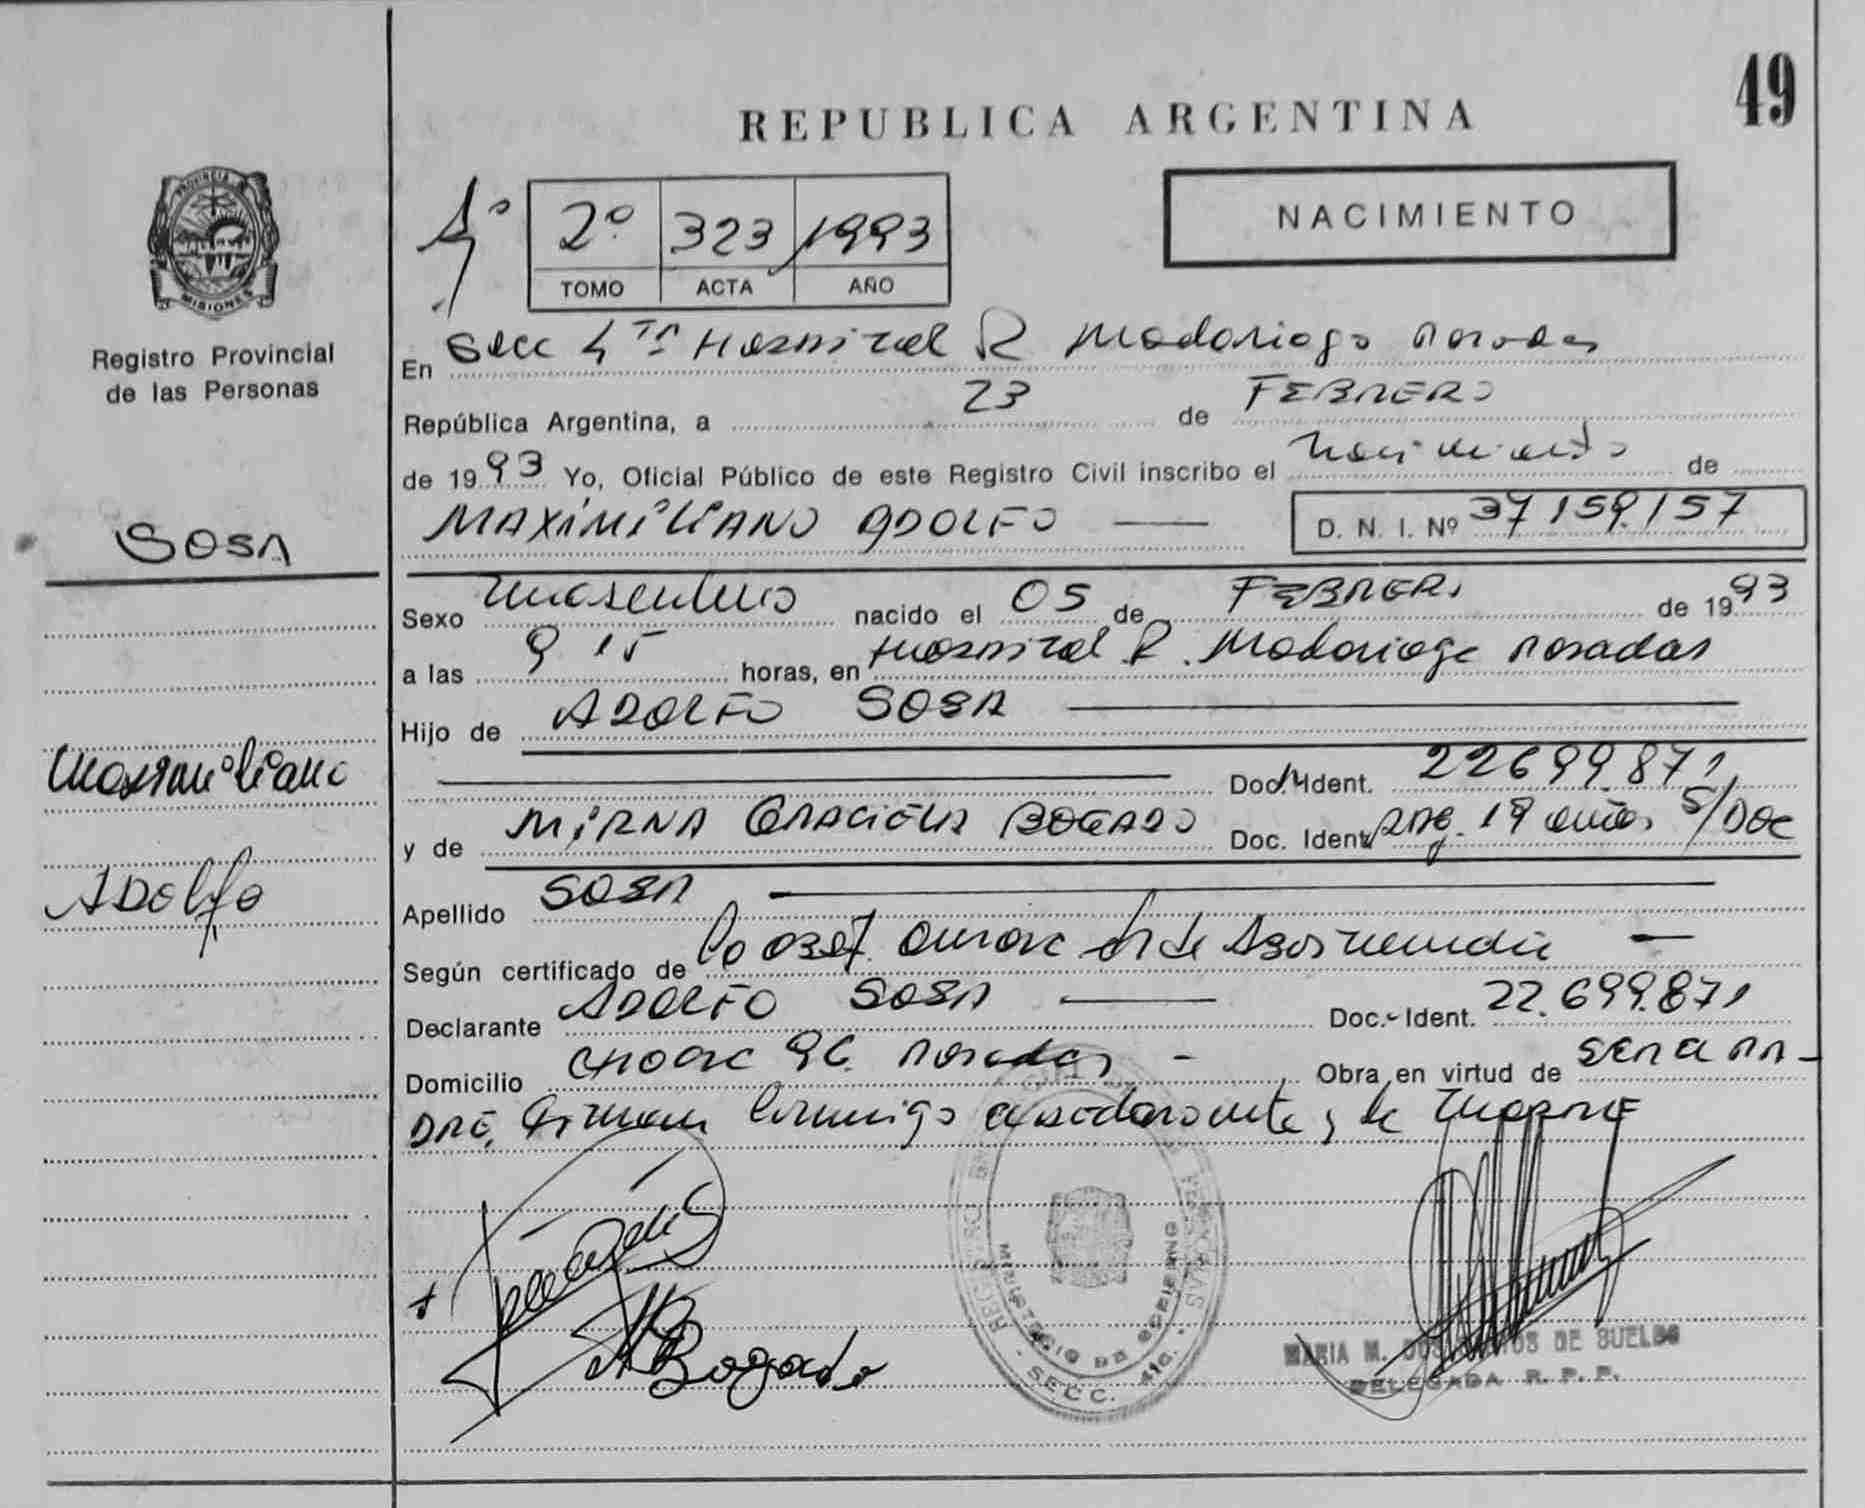 49
REPUBLICA ARGENTINA
NACIMIENTO
4º 2º 323 1993
TOMO ACTA AÑO
PROVINCIA DE
MISIONES
Registro Provincial
de las Personas
SOSA
Maximiliano
Adolfo
En Secc 4ta Hospital R Madariaga Posadas
República Argentina, a 23 de FEBRERO
de 1993 Yo, Oficial Público de este Registro Civil inscribo el Nacimiento de
MAXIMILIANO ADOLFO D. N. I. Nº 37159.157
Sexo Masculino nacido el 05 de FEBRERO de 1993
a las 9 15 horas, en Hospital R. Madariaga Posadas
Hijo de ADOLFO SOSA
Doc. Ident. 22699.871
y de MIRNA GRACIELA BOGADO Doc. Ident. Arg. 19 años S/Doc
Apellido SOSA
Según certificado de
Declarante ADOLFO SOSA Doc. Ident. 22.699.871
Domicilio 96 Posadas - Obra en virtud de SER EL PA-
DRE, Firman Conmigo el declarante y la MADRE
Bogado
REGISTRO PERSONAS
MINISTERIO DE GOBIERNO
SECC. 4ta.
MARIA M. DE SUELDO
DELEGADA R. P. P.